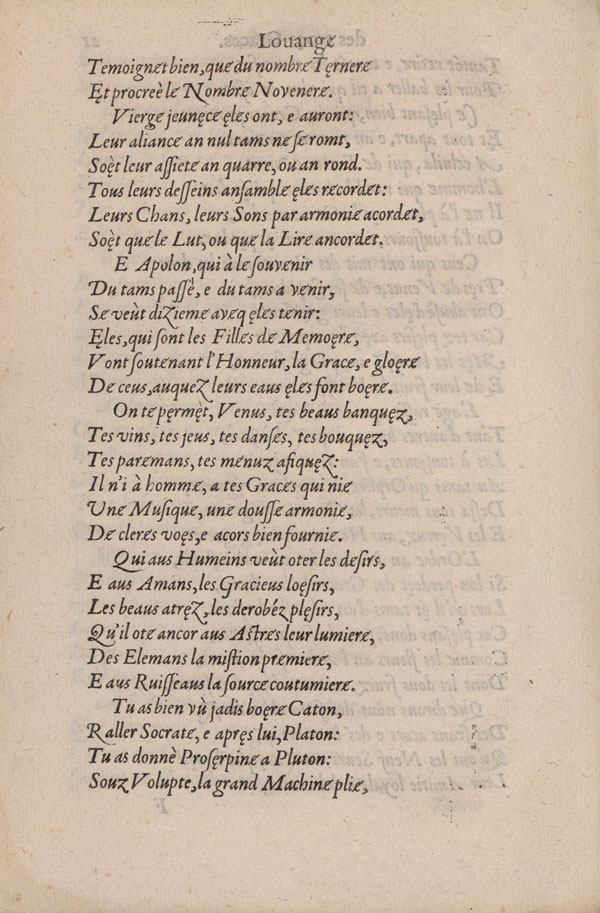 Louange
Temoignet bien, que du nombre Tęrnere
Ęt procreè le Nombre Novenere.
Vierge jeunęce ęles ont, e auront:
Leur aliance an nul tams ne se romt,
Soęt leur assiete an quarre, ou an rond.
Tous leurs desseins ansamble ęles recordet:
Leurs Chans, leurs Sons par armonie acordet,
Soęt que le Lut, ou que la Lire ancordet.
E Apolon, qui à le souvenir
Du tams passè, e du tams a venir,
Se veùt dizieme aveq ęles tenir:
Ęles, qui sont les Filles de Memoęre,
Vont soutenant l'Honneur, la Grace, e gloęre
De ceus, auquez leurs eaus ęles font boęre.
On te pęrmęt, Venus, tes beaus banquęz,
Tes vins, tes jeus, tes danses, tes bouquęz,
Tes paremans, tes menuz afiquęz:
Il n'i à homme, a tes Graces qui nie
Une Musique, une dousse armonie,
De cleres voęs, e acors bien fournie.
Qui aus Humeins veùt oter les desirs,
E aus Amans, les Gracieus loęsirs,
Les beaus atręz, les derobéz plęsirs,
Qu'il ote ancor aus Astres leur lumiere,
Des Elemans la mistion premiere,
E aus Ruisseaus la source coutumiere.
Tu as bien vù jadis boęre Caton,
Raller Socrate, e apręs lui, Platon:
Tu as donnè Prosęrpine a Pluton:
Souz Volupte, la grand Machine plie,